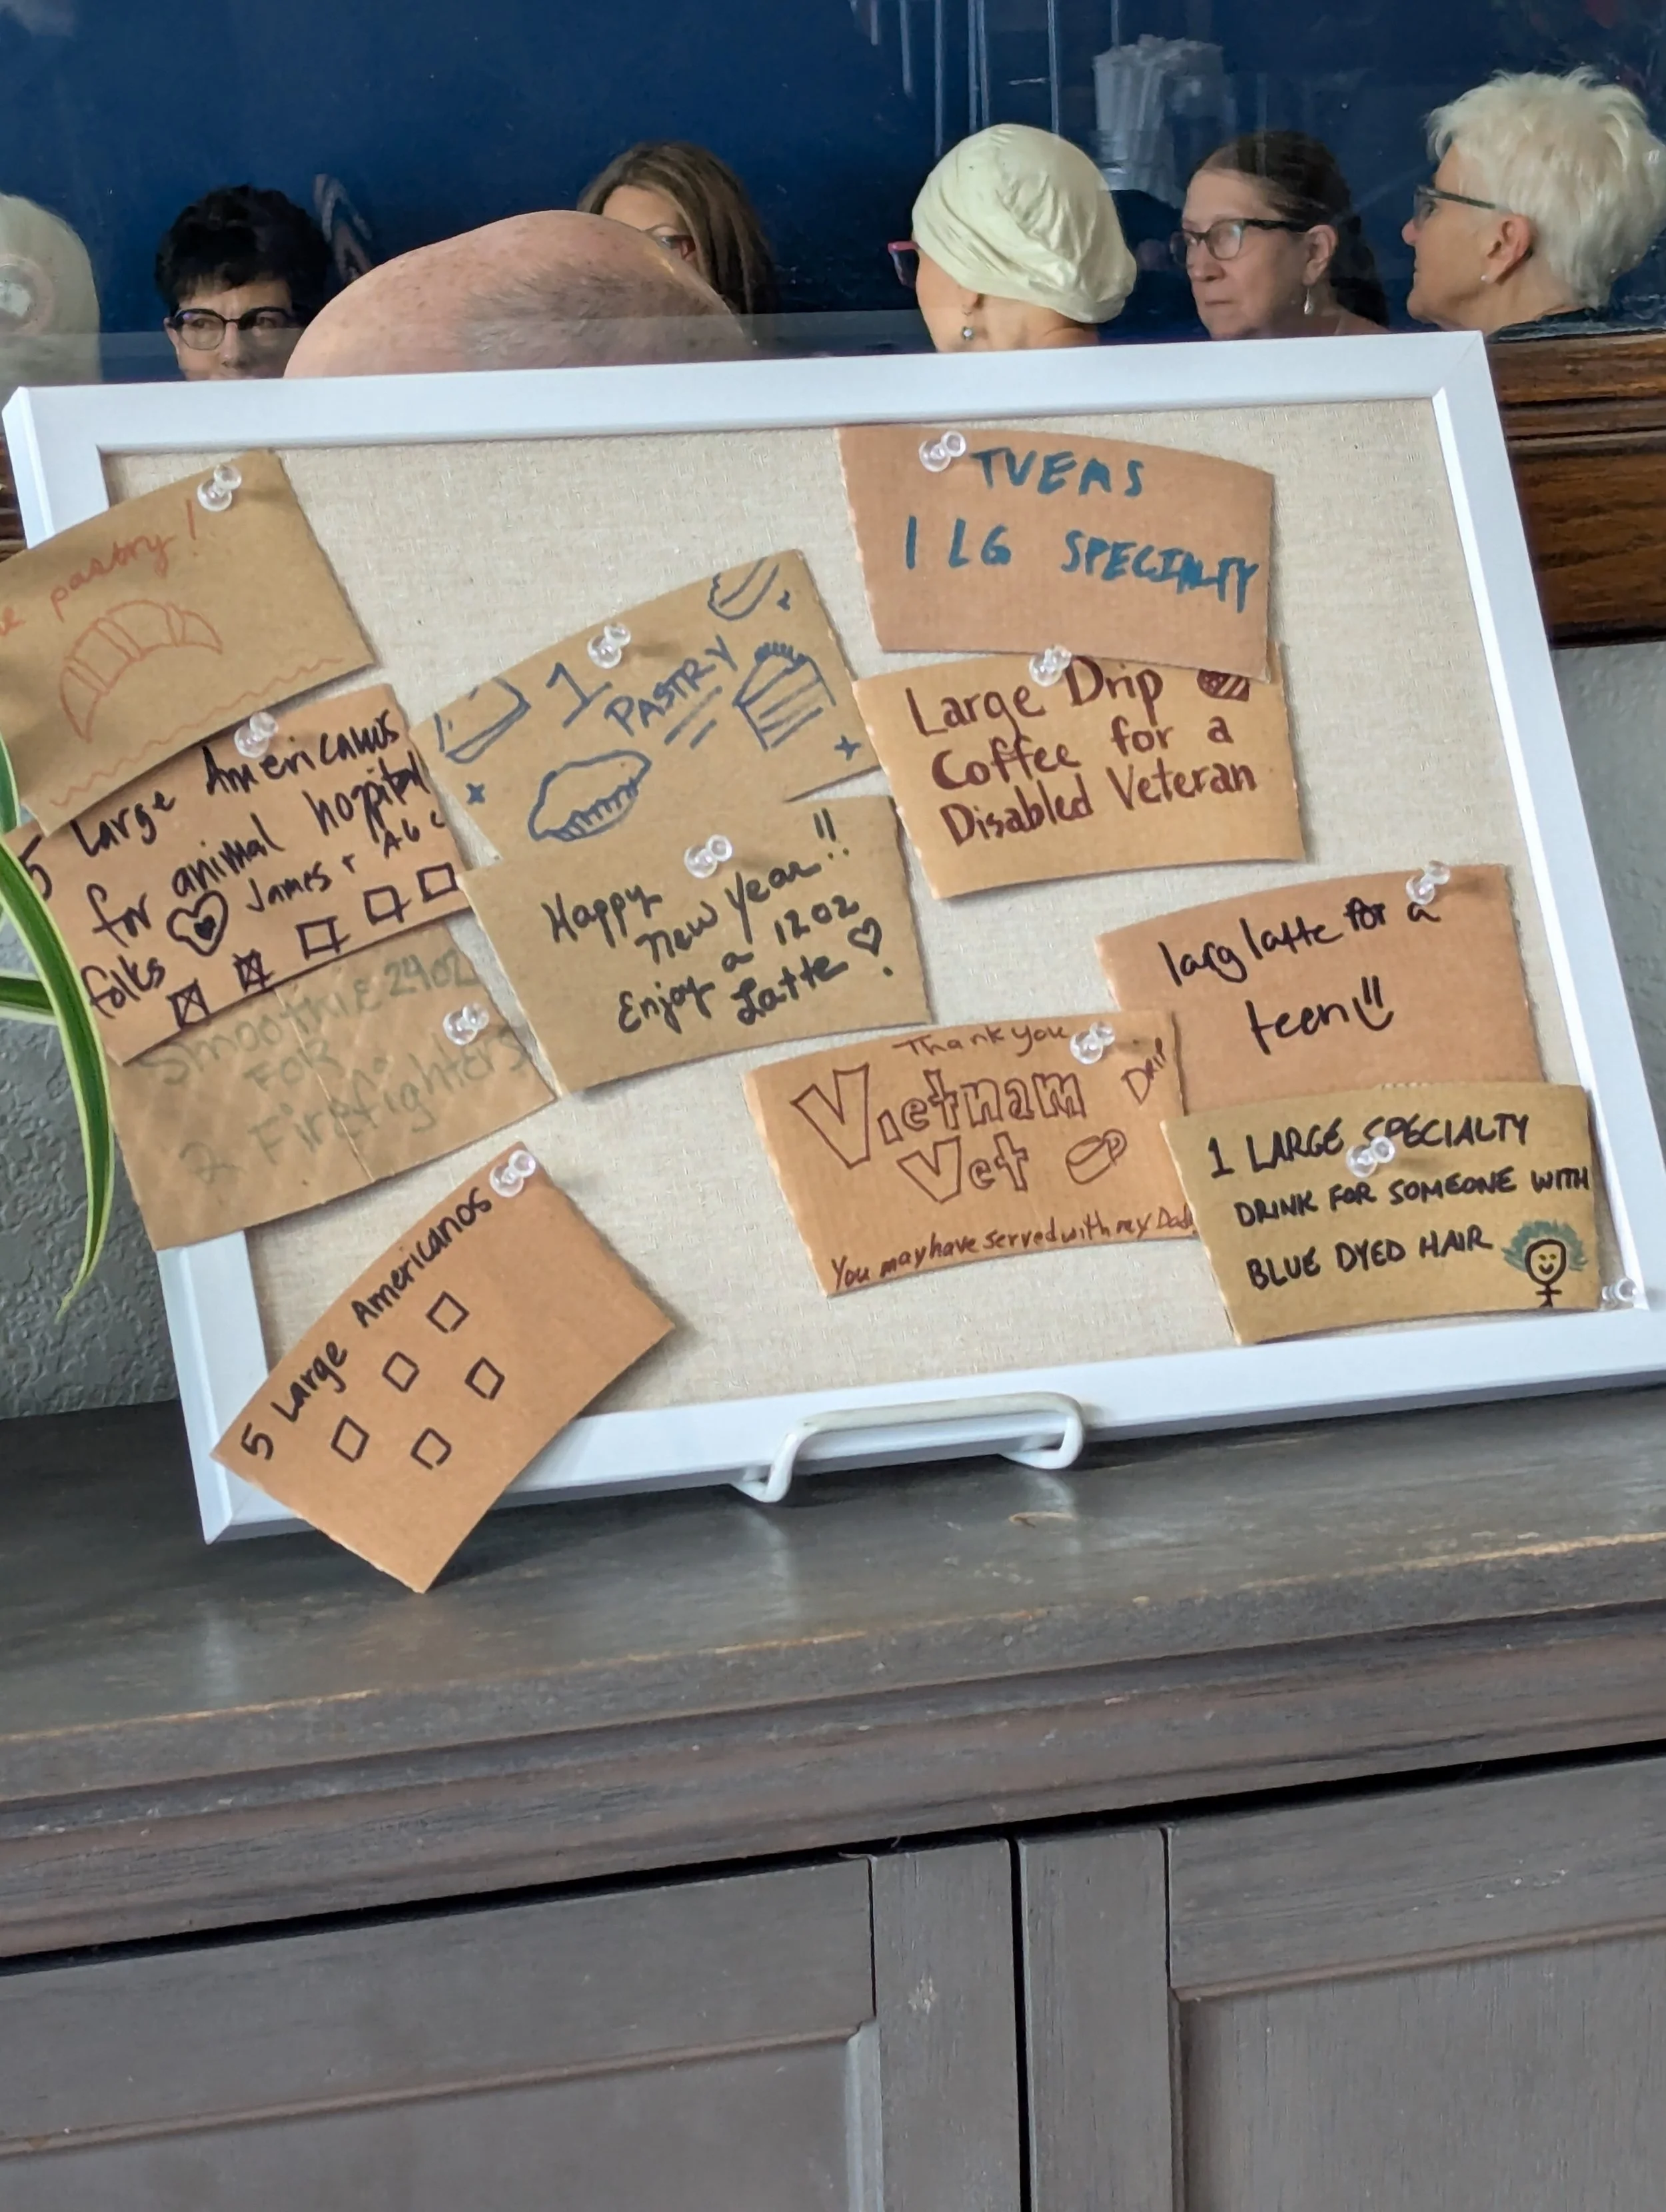 pastry!
5 Large Americanos
for animal hospital
folks James + Abc
Smoothie 24oz
FOR
2 Firefighters
5 Large Americanos
1
PASTRY
Happy
New Year!!
Enjoy a 12oz
Latte
TVEMS
1 LG SPECIALTY
Large Drip
Coffee for a
Disabled Veteran
larg latte for a
teen!!
Thank you
Vietnam
Vet
Drip
You may have served with my Dad
1 LARGE SPECIALTY
DRINK FOR SOMEONE WITH
BLUE DYED HAIR